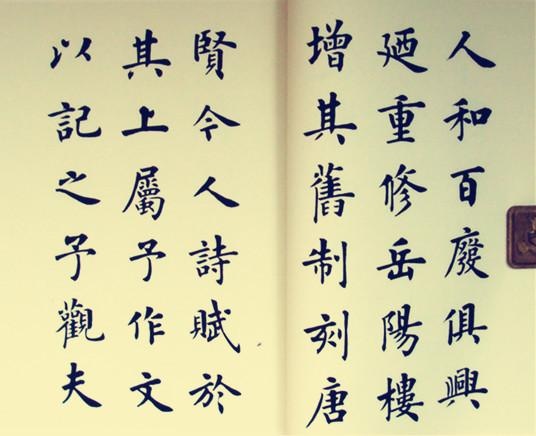 人和百廢俱興
廼重修岳陽樓
增其舊制刻唐
賢今人詩賦於
其上屬予作文
以記之予觀夫